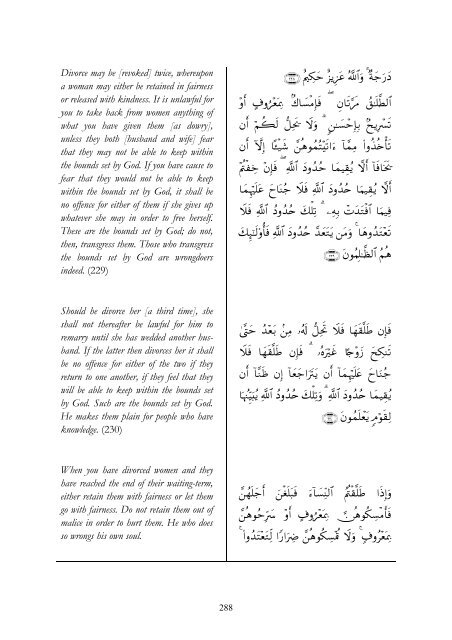 Divorce may be [revoked] twice, whereupon
a woman may either be retained in fairness
or released with kindness. It is unlawful for
you to take back from women anything of
what you have given them [as dowry],
unless they both [husband and wife] fear
that they may not be able to keep within
the bounds set by God. If you have cause to
fear that they would not be able to keep
within the bounds set by God, it shall be
no offence for either of them if she gives up
whatever she may in order to free herself.
These are the bounds set by God; do not,
then, transgress them. Those who transgress
the bounds set by God are wrongdoers
indeed. (229)
دَرَجَةٌ ۗ وَٱللَّهُ عَزِيزٌ حَكِيمٌ ﴿٢٢٨﴾
ٱلطَّلَـٰقُ مَرَّتَانِ ۖ فَإِمْسَاكٌۢ بِمَعْرُوفٍ أَوْ
تَسْرِيحٌۢ بِإِحْسَـٰنٍ ۗ وَلَا يَحِلُّ لَكُمْ أَن
تَأْخُذُوا۟ مِمَّآ ءَاتَيْتُمُوهُنَّ شَيْـًٔا إِلَّآ أَن
يَخَافَآ أَلَّا يُقِيمَا حُدُودَ ٱللَّهِ ۖ فَإِنْ خِفْتُمْ
أَلَّا يُقِيمَا حُدُودَ ٱللَّهِ فَلَا جُنَاحَ عَلَيْهِمَا
فِيمَا ٱفْتَدَتْ بِهِۦ ۗ تِلْكَ حُدُودُ ٱللَّهِ فَلَا
تَعْتَدُوهَا ۚ وَمَن يَتَعَدَّ حُدُودَ ٱللَّهِ فَأُو۟لَـٰٓئِكَ
هُمُ ٱلظَّـٰلِمُونَ ﴿٢٢٩﴾
Should he divorce her [a third time], she
shall not thereafter be lawful for him to
remarry until she has wedded another hus-
band. If the latter then divorces her it shall
be no offence for either of the two if they
return to one another, if they feel that they
will be able to keep within the bounds set
by God. Such are the bounds set by God.
He makes them plain for people who have
knowledge. (230)
فَإِن طَلَّقَهَا فَلَا تَحِلُّ لَهُۥ مِنۢ بَعْدُ حَتَّىٰ
تَنكِحَ زَوْجًا غَيْرَهُۥ ۗ فَإِن طَلَّقَهَا فَلَا
جُنَاحَ عَلَيْهِمَآ أَن يَتَرَاجَعَآ إِن ظَنَّآ أَن
يُقِيمَا حُدُودَ ٱللَّهِ ۗ وَتِلْكَ حُدُودُ ٱللَّهِ يُبَيِّنُهَا
لِقَوْمٍ يَعْلَمُونَ ﴿٢٣٠﴾
When you have divorced women and they
have reached the end of their waiting-term,
either retain them with fairness or let them
go with fairness. Do not retain them out of
malice in order to hurt them. He who does
so wrongs his own soul.
وَإِذَا طَلَّقْتُمُ ٱلنِّسَآءَ فَبَلَغْنَ أَجَلَهُنَّ
فَأَمْسِكُوهُنَّ بِمَعْرُوفٍ أَوْ سَرِّحُوهُنَّ
بِمَعْرُوفٍ ۚ وَلَا تُمْسِكُوهُنَّ ضِرَارًا لِّتَعْتَدُوا۟ ۚ
288